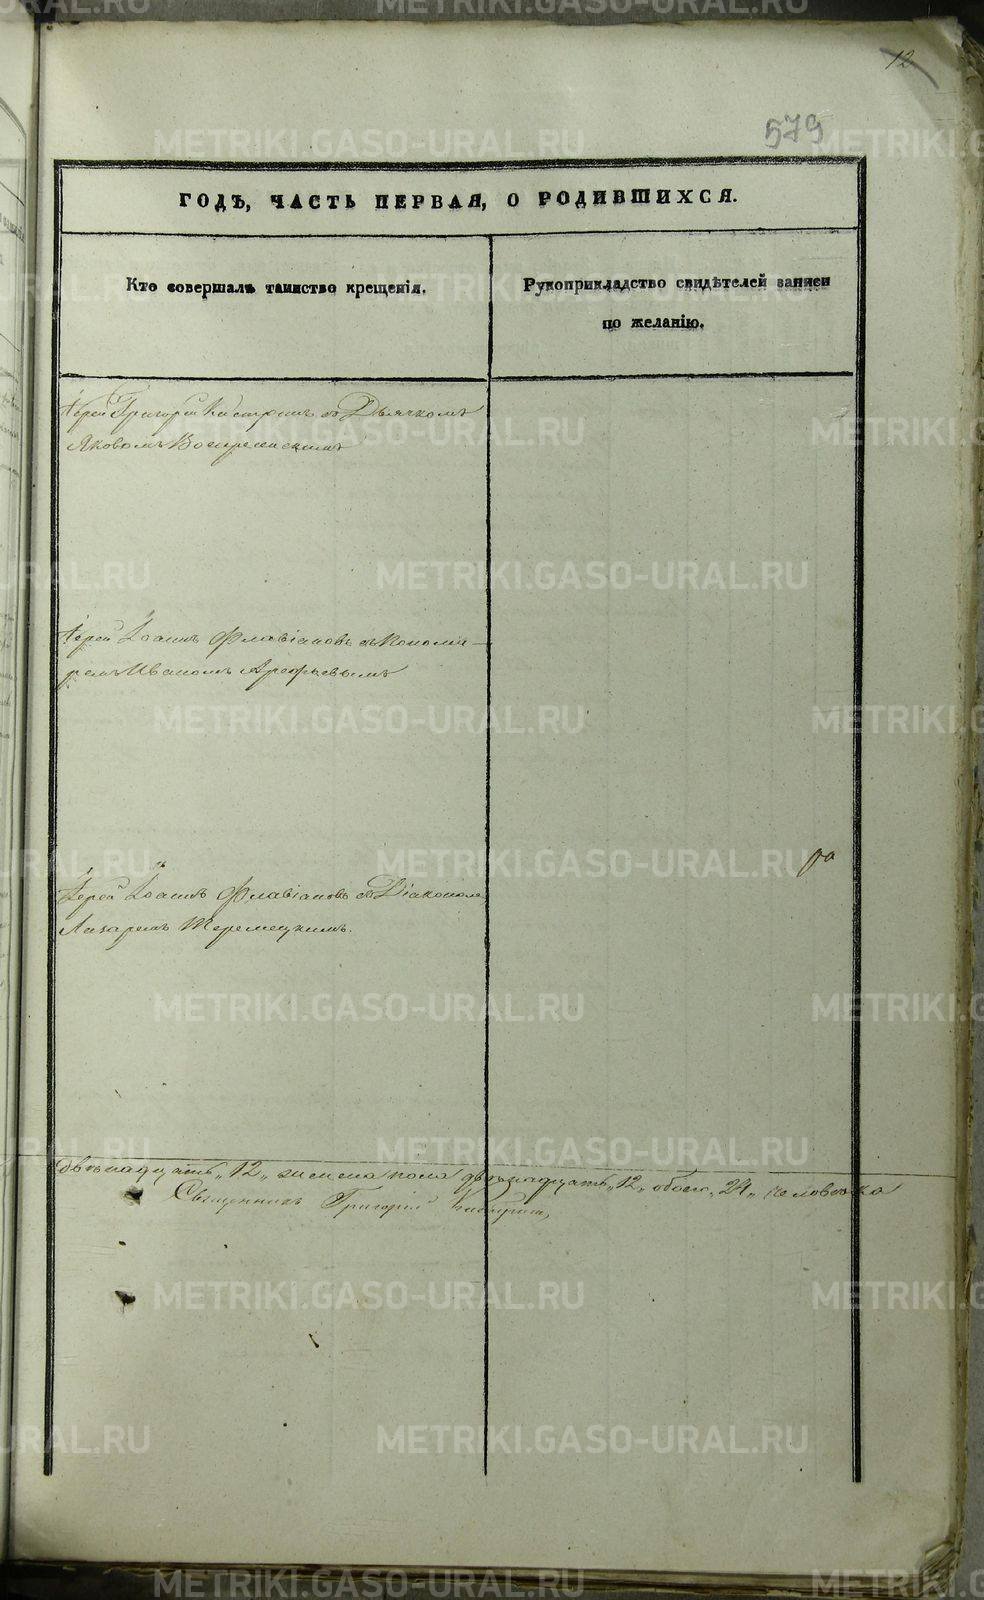 12
579
ГОДЪ, ЧАСТЬ ПЕРВАЯ, О РОДИВШИХСЯ.
Кто совершалъ таинство крещенія.
Рукоприкладство свидѣтелей записи
по желанію.
Іерей Григорій Кастринъ съ Дьячкомъ
Яковомъ Воскресенскимъ
Іерей Іоаннъ Флавіановъ съ Пономa-
ремъ Иваномъ Арефьевымъ
Іерей Іоаннъ Флавіановъ съ Діакономъ
Лазаремъ Теремецкимъ.
двѣнадцать „12„ женска пола двѣнадцать „12„ обоего „24„ человѣка
Священникъ Григорій Кастринъ
METRIKI.GASO-URAL.RU